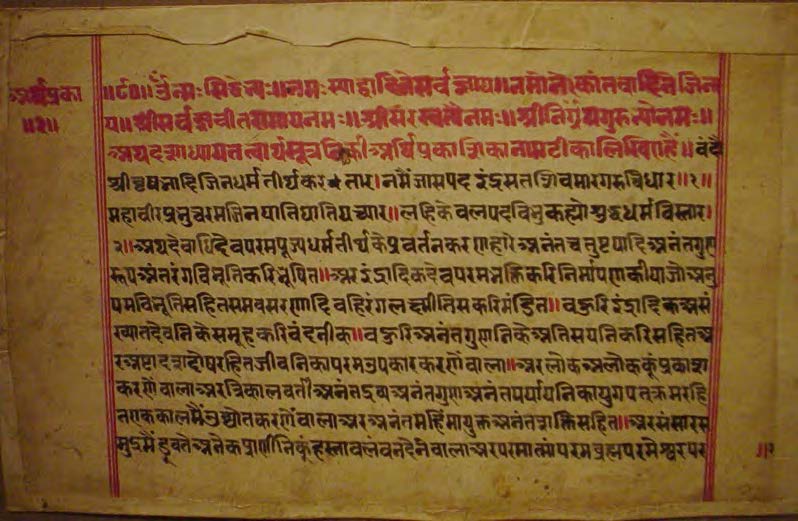 अर्थप्रका
॥१॥
॥ॐ नमः सिद्धेभ्यः॥नमः स्याद्वादिने सर्वज्ञाय॥नमोनेकांतवादिने जिना
य॥श्रीसर्वज्ञवीतरागाय नमः॥श्रीसरस्वत्यै नमः॥श्रीनिर्ग्रंथगुरुभ्यो नमः॥
अथ दशाध्याय तत्वार्थसूत्र की अर्थप्रकाशिका नाम टीका लिखिए है॥ वंदौं
श्रीवृषभादि जिन धर्मतीर्थ करतार। नमैं जास पद इंद्र सत शिवमारग रुचि धार॥१॥
महावीर प्रभु चरम जिन घाति घातिया च्यार॥लहि केवलपद विभु कह्यो शुद्ध धर्म विस्तार॥
२॥अथ देवाधिदेव परम पूज्य धर्मतीर्थके प्रवर्तन करणहारे अनंत चतुष्टयादि अनंतगुण
रूप अंतरंग विभूति करि भूषित॥अर इंद्रादिक देव परमभक्ति करि निर्मापण कीया जो अनु
पम विभूति सहित समवसरणादि बहिरंग लक्ष्मी तिसकरि मंडित॥बहुरि इंद्रादिक असं
ख्यात देवनिके समूह करि वंदनीक॥बहुरि अनंत गुणनिके अतिसयनिकरि सहित अ
र अष्टादश दोष रहित जीवनिका परम उपकार करणेंवाला॥अर लोक अलोककूं प्रकाश
करणेंवाला अर त्रिकालवर्ती अनंतद्रव्य अनंतगुण अनंतपर्यायनिका युगपत क्रमरहि
त एककालमैं उद्योत करणेंवाला अर अनंत महिमायुक्त अनंतशक्तिसहित॥अर संसारस
मुद्रमैं डूबते अनेक प्राणीनिकूं हस्तावलंबन दैनेवाला अर परमात्मा परमब्रह्म परमेश्वर पर